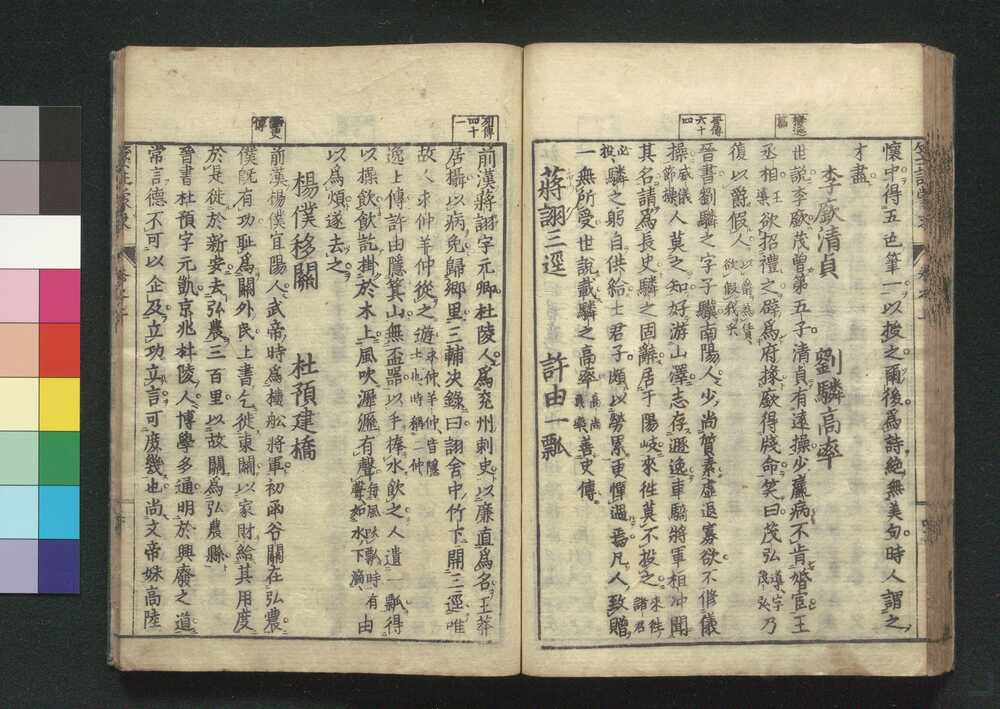 懷中得五色筆一以授之爾後為詩絕無美句時人謂之
才盡
李廞清貞　劉驎高率
世說李廞茂曾第五子清貞有遠操少羸病不肯婚宦王
丞相王導欲招禮之辟為府掾廞得牋命笑曰茂弘導字茂弘乃
復以爵假人
晉書劉驎之字子驥南陽人少尚質素虛退寡欲不修儀
操人莫之知好游山澤志存遯逸車騎將軍桓冲聞
其名請為長史驎之固辭居于陽岐來徃莫不投之
驎之躬自供給士君子頗以勞累更憚過焉凡人致贈
一無所受世說載驎之高率善史傳
蔣詡三逕　許由一瓢
前漢蔣詡字元卿杜陵人為兗州刺史以廉直為名王莽
居攝以病免歸鄉里三輔決錄曰詡舍中竹下開三逕唯
故人求仲羊仲從之遊求仲羊仲皆隱士也時稱二仲
逸士傳許由隱箕山無盃器以手捧水飲之人遺一瓢得
以操飲飲訖掛於木上風吹瀝瀝有聲由
以為煩遂去之
楊僕移關　杜預建橋
前漢楊僕宜陽人武帝時為樓舩將軍初凾谷關在弘農
僕既有功耻為關外民上書乞徙東關以家財給其用度
於是徙於新安去弘農三百里以故關為弘農縣
晉書杜預字元凱京兆杜陵人博學多通明於興廢之道
常言德不可以企及立功立言可庶幾也尚文帝妹高陸
列傳
四十
一
晉傳
六十
四